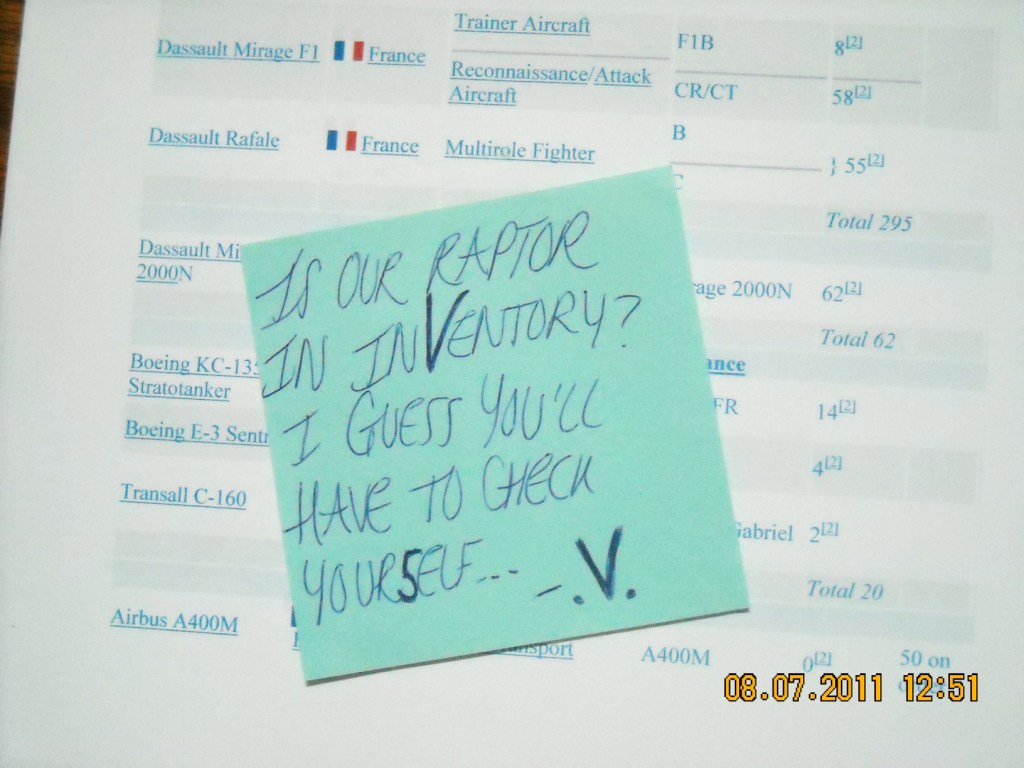 Trainer Aircraft
Dassault Mirage F1 France F1B 8[2]
Reconnaissance/Attack
Aircraft CR/CT 58[2]
Dassault Rafale France Multirole Fighter B
C } 55[2]
Total 295
Dassault
2000N 2000N 62[2]
Total 62
Boeing
Stratotanker 14[2]
Boeing E-3 4[2]
Transall C-160 Gabriel 2[2]
Total 20
Airbus A400M A400M 0[2] 50 on
IS OUR RAPTOR
IN INVENTORY?
I GUESS YOU'LL
HAVE TO CHECK
YOUR5ELF... -.V.
08.07.2011 12:51